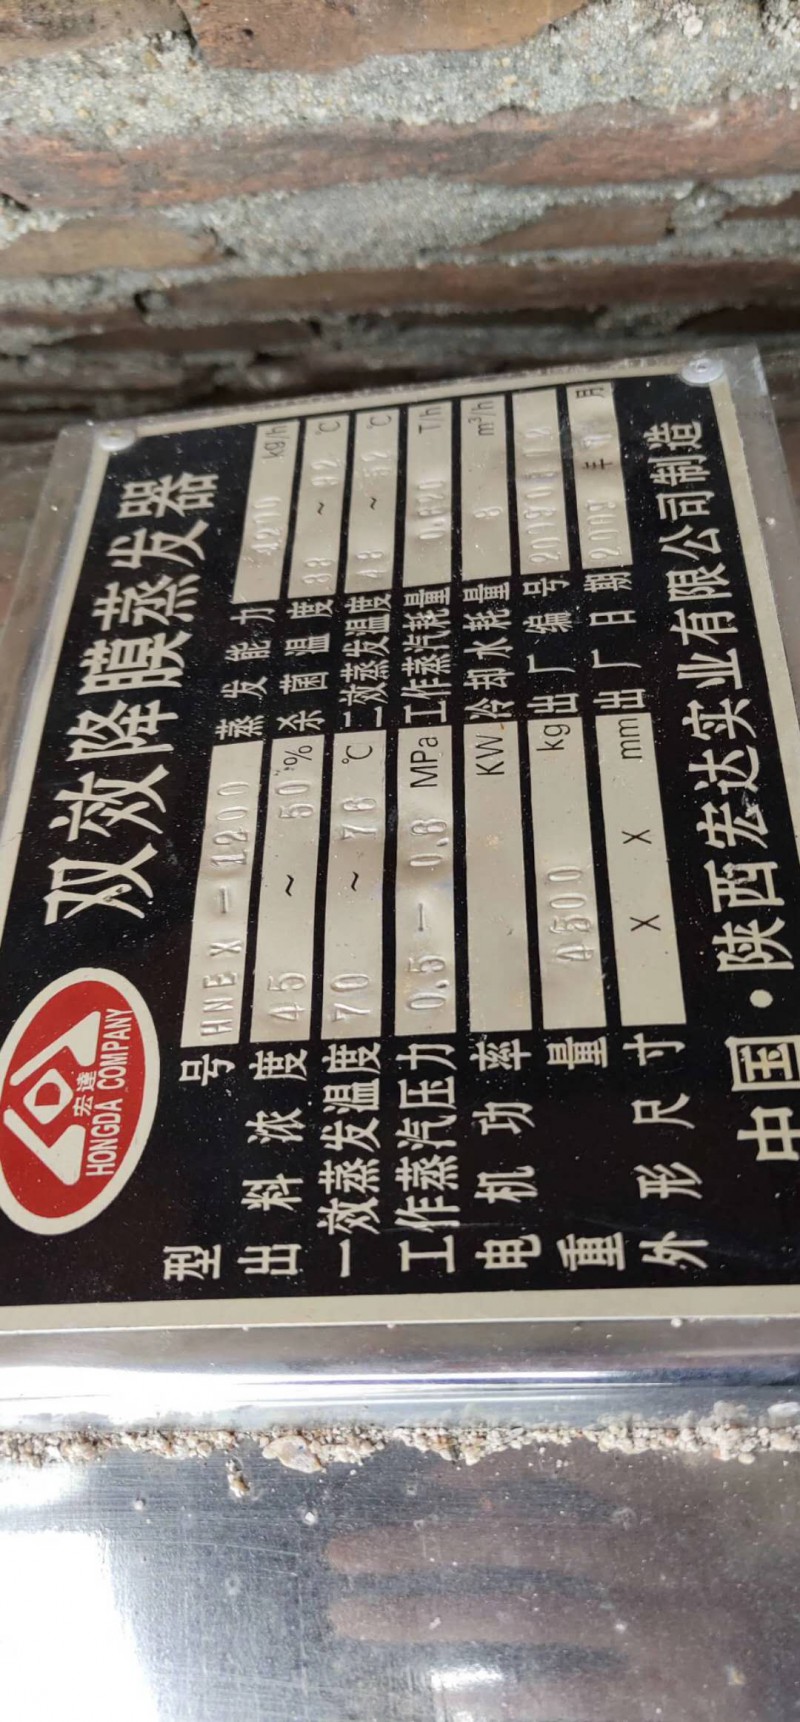 宏達
HONGDA COMPANY
双效降膜蒸发器
型号 HNEX-1200 蒸发能力 kg/h
出料浓度 45 ~ 50% 杀菌温度 88 ~ 92 ℃
一效蒸发温度 70 ~ 76 ℃ 二效蒸发温度 48 ~ 52 ℃
工作蒸汽压力 0.5-0.8 MPa 工作蒸汽耗量 T/h
电机功率 KW 冷却水耗量 8 m³/h
重量 4500 kg 出厂编号
外形尺寸 X X mm 出厂日期 年 月
中国·陕西宏达实业有限公司制造